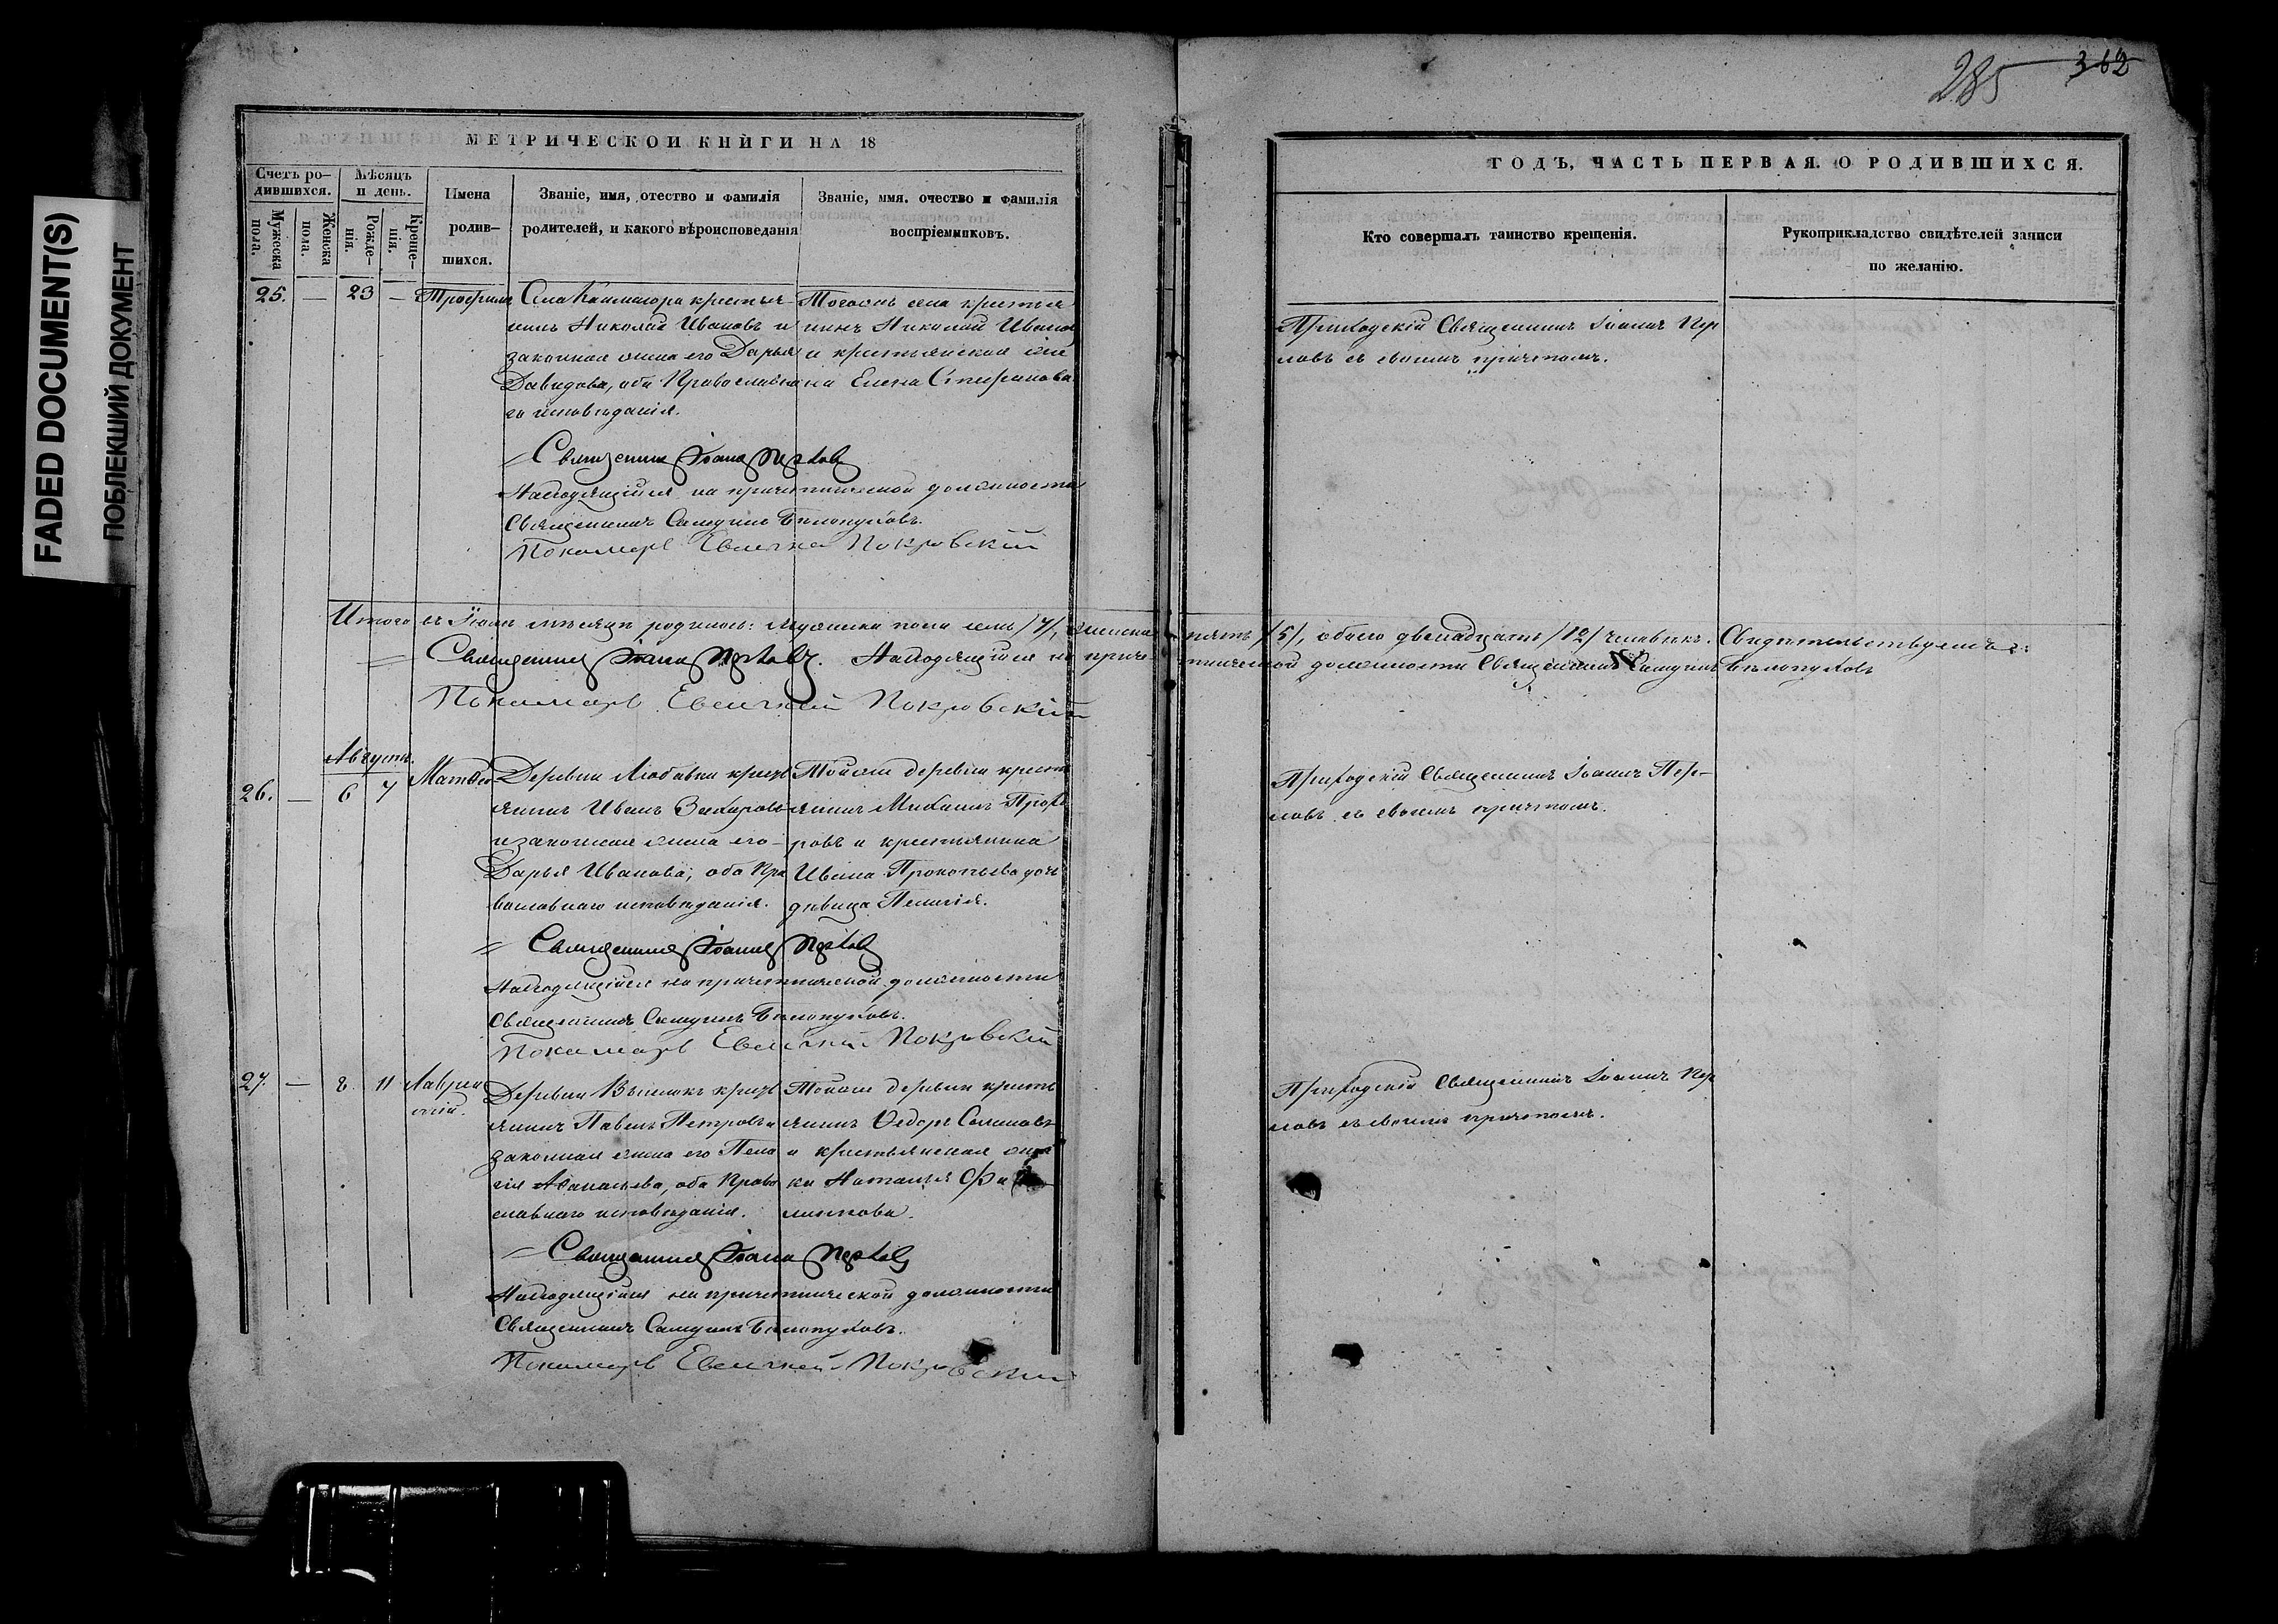 FADED DOCUMENT(S)
ПОБЛЕКШИЙ ДОКУМЕНТ
285 362
МЕТРИЧЕСКОЙ КНИГИ НА 18
Счетъ ро-
дившихся.
Мѣсяцъ
и день.
Мужеска
пола.
Женска
пола.
Рожде-
нія.
Креще-
нія.
Имена
родив-
шихся.
Званіе, имя, отество и фамилія
родителей, и какого вѣроисповеданія
Званіе, имя. очество и фамилія
воспріемниковъ.
ГОДЪ, ЧАСТЬ ПЕРВАЯ. О РОДИВШИХСЯ.
Кто совершалъ таинство крещенія.
Рукоприкладство свидѣтелей записи
по желанію.
25. — 23 — Трофимъ
крестья-
нинъ Николай Ивановъ и
законная жена его Дарья
Давидова, оба Православна
го исповѣданія.
Тогоже села крестья
нинъ Николай Иванов
и крестьянская же
на Елена Стефанова
Приходскій Священникъ Іоаннъ Пер
ловъ съ своимъ причтомъ.
Священникъ Іоаннъ Перловъ
Находящійся на причетнической должности
Священникъ Самуилъ Бѣлопуховъ.
Пономарь Евгеній Покровскій
Итого въ Іюлѣ мѣсяцѣ родилось: мужеска пола семь /7/, женска пять /5/, обоего двенадцать /12/ человѣкъ. Свидѣтельствуемъ:
Священникъ Іоаннъ Перловъ. Находящійся на причетнической должности Священникъ Самуилъ Бѣлопуховъ
Пономарь Евгеній Покровскій
Августъ.
26. — 6 7 Матвей
Деревни Любавки крест
янинъ Иванъ Захаровъ
и законная жена его
Дарья Иванова, оба Пра
вославнаго исповѣданія.
Тойже деревни крест
янинъ Михаилъ Прохо
ровъ и крестьянина
Ивана Прокопьева дочь
дѣвица Пелагія.
Приходскій Священникъ Іоаннъ Пер-
ловъ съ своимъ причтомъ.
Священникъ Іоаннъ Перловъ
Находящійся на причетнической должности
Священникъ Самуилъ Бѣлопуховъ.
Пономарь Евгеній Покровскій
27. — 8. 11 Лаврен
тій.
Деревни Выселокъ крест
янинъ Павелъ Петровъ и
законная жена его Пела
гія Аѳанасьева, оба Право
славнаго исповѣданія.
Тойже деревни кресть
янинъ Ѳедоръ Семеновъ
и крестьянская жен
ка Наталья Фи
липпова.
Приходскій Священникъ Іоаннъ Пер
ловъ съ своимъ причтомъ.
Священникъ Іоаннъ Перловъ
Находящійся на причетнической должности
Священникъ Самуилъ Бѣлопуховъ.
Пономарь Евгеній Покровскій